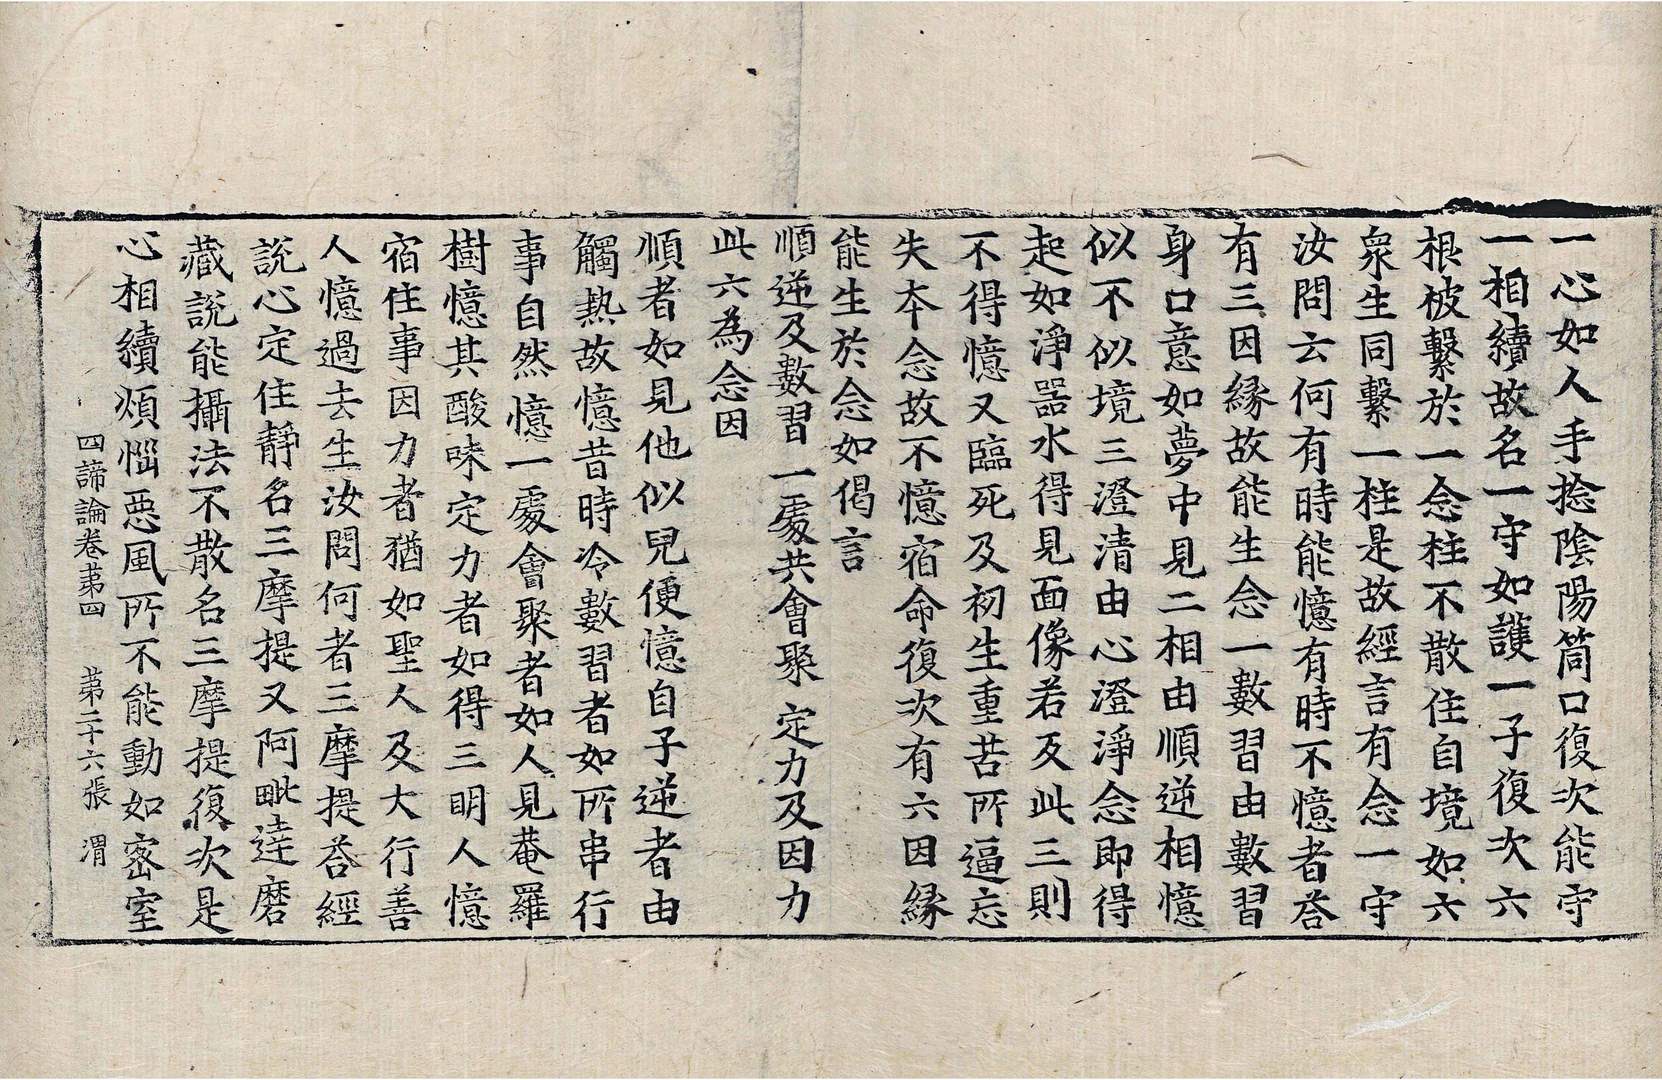 一心如人手捻陰陽筒口復次能守
一相續故名一守如護一子復次六
根被繫於一念柱不散住自境如六
衆生同繫一柱是故經言有念一守
汝問云何有時能憶有時不憶者荅
有三因緣故能生念一數習由數習
身口意如夢中見二相由順逆相憶
似不似境三澄清由心澄淨念即得
起如淨噐水得見面像若反此三則
不得憶又臨死及初生重苦所逼忘
失本念故不憶宿命復次有六因緣
能生於念如偈言
順逆及數習　一處共會聚　定力及因力
此六為念因
順者如見他似兒便憶自子逆者由
觸熱故憶昔時冷數習者如所串行
事自然憶一處會聚者如人見菴羅
樹憶其酸味定力者如得三明人憶
宿住事因力者猶如聖人及大行善
人憶過去生汝問何者三摩提荅經
說心定住靜名三摩提又阿毗達磨
藏說能攝法不散名三摩提復次是
心相續煩惱惡風所不能動如密室
四諦論卷苐四　苐二十六張　渭